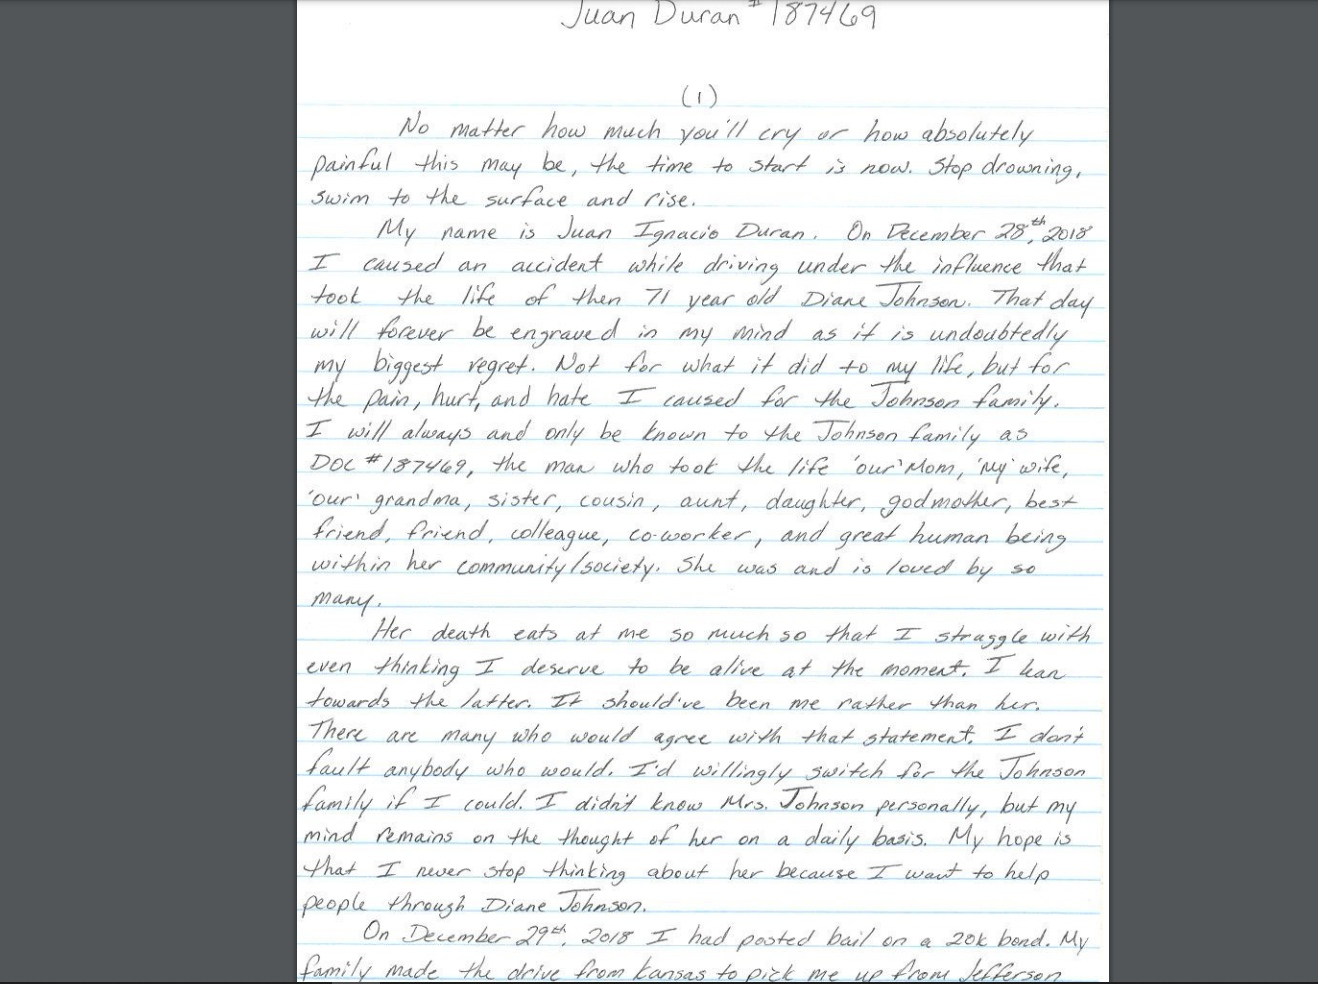 Juan Duran # 187469
(1)
No matter how much you'll cry or how absolutely
painful this may be, the time to start is now. Stop drowning,
swim to the surface and rise.
My name is Juan Ignacio Duran. On December 28th, 2018
I caused an accident while driving under the influence that
took the life of then 71 year old Diane Johnson. That day
will forever be engraved in my mind as it is undoubtedly
my biggest regret. Not for what it did to my life, but for
the pain, hurt, and hate I caused for the Johnson family.
I will always and only be known to the Johnson family as
DOC #187469, the man who took the life 'our' Mom, 'my' wife,
'our' grandma, sister, cousin, aunt, daughter, godmother, best
friend, friend, colleague, co-worker, and great human being
within her community/society. She was and is loved by so
many.
Her death eats at me so much so that I straggle with
even thinking I deserve to be alive at the moment. I lean
towards the latter. It should've been me rather than her.
There are many who would agree with that statement. I don't
fault anybody who would. I'd willingly switch for the Johnson
family if I could. I didn't know Mrs. Johnson personally, but my
mind remains on the thought of her on a daily basis. My hope is
that I never stop thinking about her because I want to help
people through Diane Johnson.
On December 29th, 2018 I had posted bail on a 20k bond. My
family made the drive from Kansas to pick me up from Jefferson